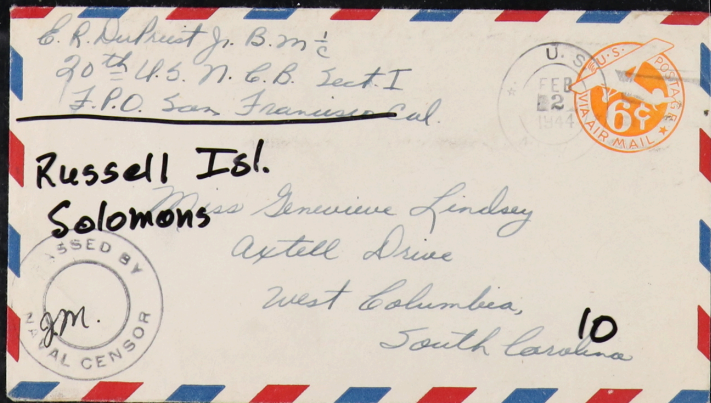 E. R. DuPriest Jr. B. M 1/c
20th U.S. N. C. B. Sect. I
F.P.O. San Francisco Cal.
U. S.
FEB
2
1944
U.S. POSTAGE
6¢
VIA AIR MAIL
Russell Isl.
Solomons
Miss Genevieve Lindsey
Axtell Drive
West Columbia,
South Carolina
10
PASSED BY
J.M.
NAVAL CENSOR